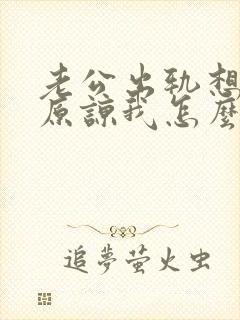 老公出轨想
原諒我怎麼
追夢萤火虫